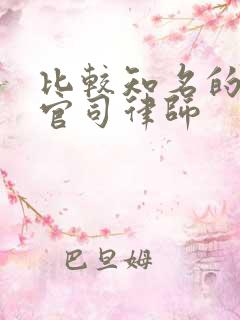 比較知名的
官司律師
巴旦姆